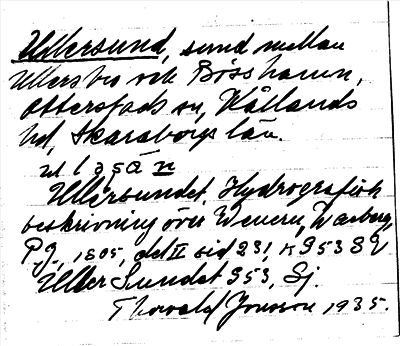 Ullersund, sund mellan
Ullersbro och Bösshamn,
Otterstads sn, Kållands
hd, Skaraborgs län.
Ullersundet. Hydrografisk
beskrivning över Wenern, Warberg,
P.G., 1805, del II sid 231, K 953 8°
Uller Sundet 353, Sj.
Thorvald Jonsson 1935.